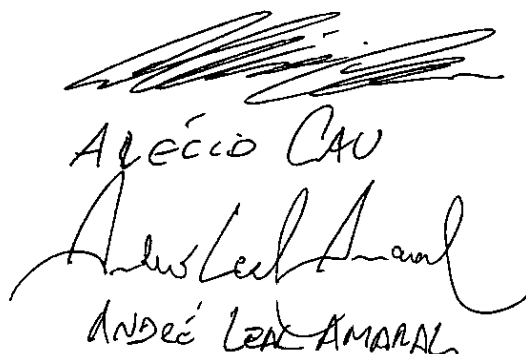 ALÉCIO CAU
André Leal Amaral
ANDRÉ LEAL AMARAL